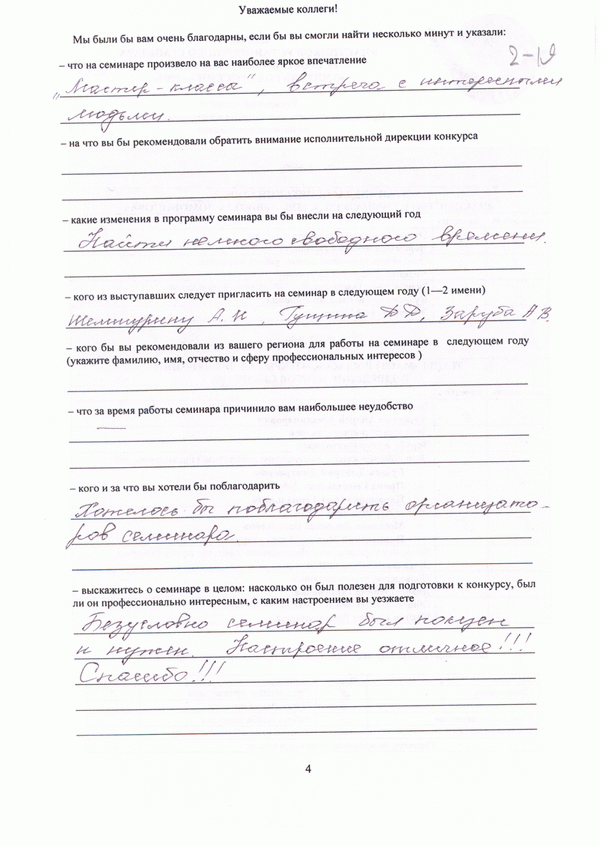 Уважаемые коллеги!
Мы были бы вам очень благодарны, если бы вы смогли найти несколько минут и указали:
2-19
– что на семинаре произвело на вас наиболее яркое впечатление
„Мастер-класса", встреча с интересными
людьми.
– на что вы бы рекомендовали обратить внимание исполнительной дирекции конкурса
– какие изменения в программу семинара вы бы внесли на следующий год
Найти немного свободного времени.
– кого из выступавших следует пригласить на семинар в следующем году (1—2 имени)
Шемшурину А. И, Гущина Д Д, Заруба А В.
– кого бы вы рекомендовали из вашего региона для работы на семинаре в следующем году
(укажите фамилию, имя, отчество и сферу профессиональных интересов )
– что за время работы семинара причинило вам наибольшее неудобство
– кого и за что вы хотели бы поблагодарить
Хотелось бы поблагодарить организато-
ров семинара.
– выскажитесь о семинаре в целом: насколько он был полезен для подготовки к конкурсу, был
ли он профессионально интересным, с каким настроением вы уезжаете
Безусловно семинар был полезен
и нужен. Настроение отличное!!!
Спасибо!!!
4